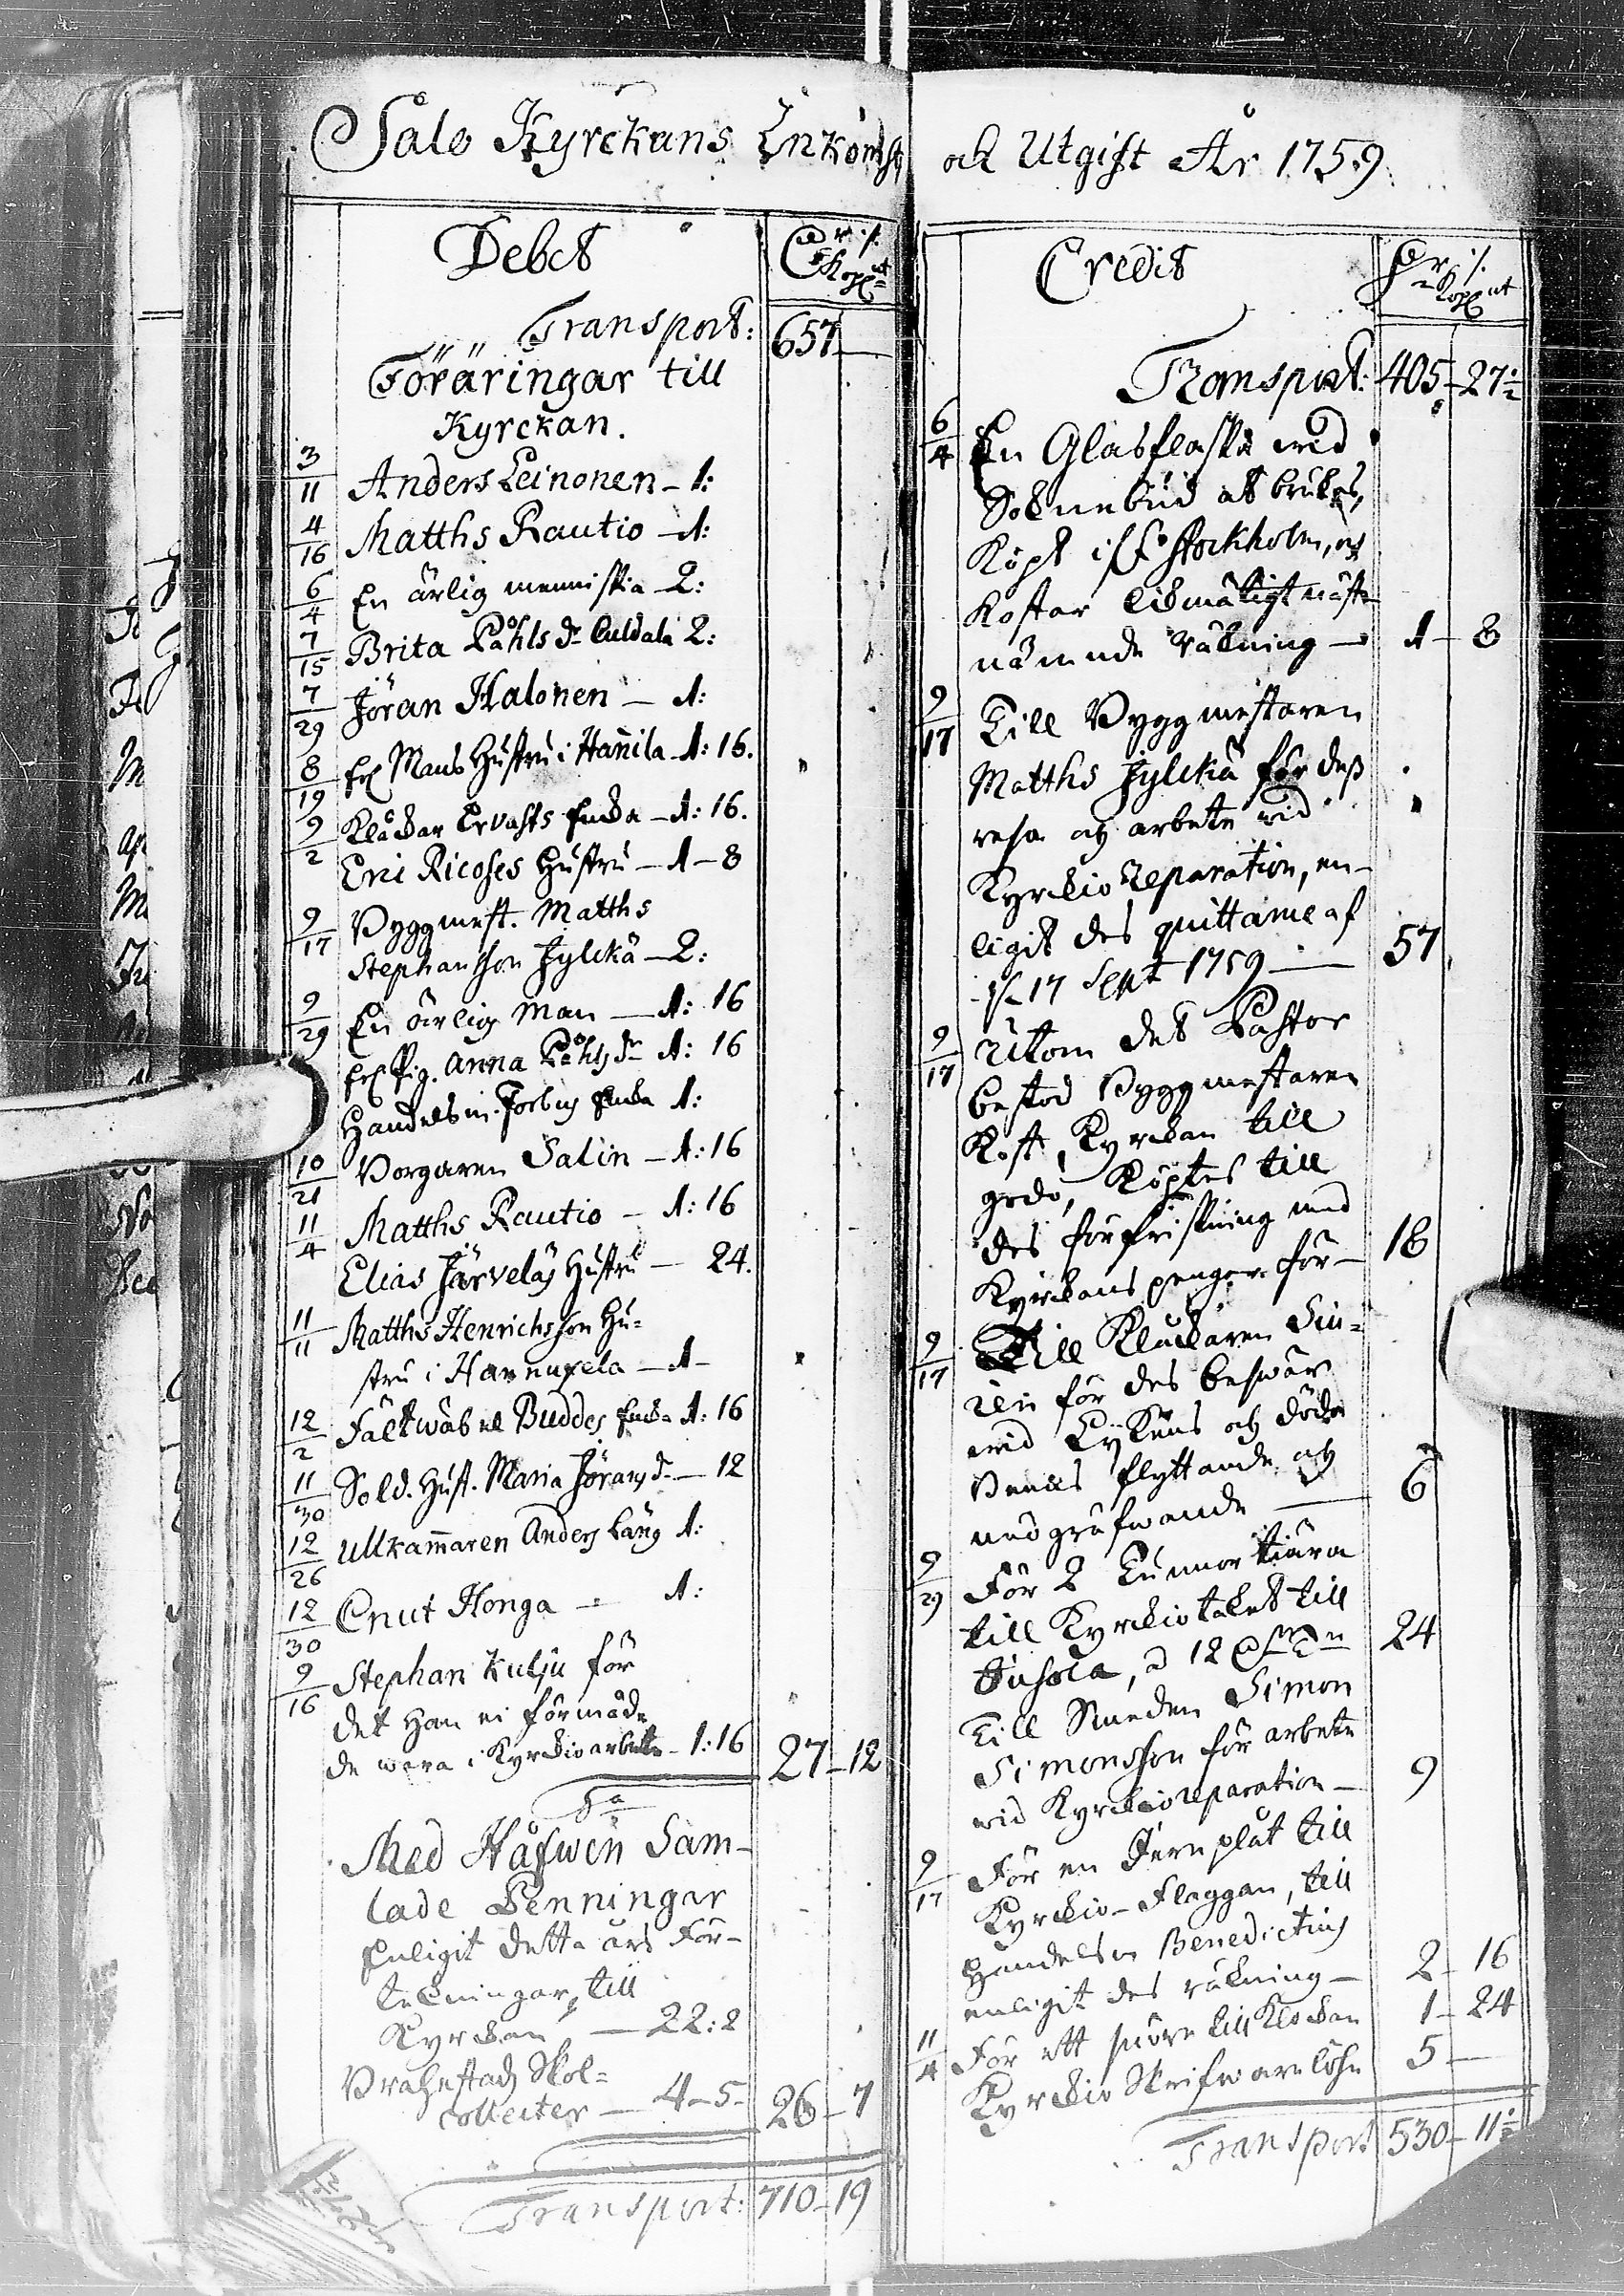 Salo Kyrckans Inkomst
och Utgift År 1759
Debet
Transport: 657 —
Föräringar till
Kyrckan.
3/11 Anders Leinonen - 1:
4/16 Matths Rautio - 1:
6/4 En ärlig menniskia - 2:
7/15 Brita Påhls dr 2:
7/29 Jöran Halonen - 1:
8/19 Mans Hustru i Hannila - 1: 16.
9/2 Klåckar Ervasts Enka - 1: 16.
Eric Ricoses Hustru - 1 - 8
9/17 Byggmest. Matths
Stephansson Jylckä - 2:
9/29 En ärlig Man - 1: 16
Pig. Anna Påhls dr 1: 16
Handelsm. Forbus Enka 1:
10/21 Borgaren Salin - 1: 16
11/4 Matths Rautio - 1: 16
Elias Järveläs Hustru - 24.
11/11 Matths Henrichsson Hu-
stru i - 1 -
12/2 Fältwäbel Buddes Enka 1: 16
11/30 Sold. Hust. Maria Jörans dr - 12
12/26 Ullkammaren Anders Lång 1:
12/30 Cnut Honga - 1:
9/16 Stephan Kulju för
det Han ei förmåd-
de wara i Kyrckioarbete - 1: 16 27 - 12
Sa
Med Håfwen Sam-
lade Penningar
Enligit detta års För-
tekningar, till
Kyrckan - 22: 2
Brahestads Skol-
collecter - 4 - 5 - 26 - 7
Transport: 710 - 19
Credit
Transport: 405 - 27 1/2
6/4 En Glasflaska wid
Sockne bud at brukas,
Köpt ifr. Stockholm, och
Kostar likmätigt näst-
nämnde räkning - 1 - 8
9/17 Till Byggmestaren
Matths Jylckä för dess
resa och arbete wid
Kyrckio Reparation, en-
ligit des quittance af
d. 17 Sept 1759 - 57
9/17 Utom det Pastor
bestod Byggmestaren
Kost, Kyrckan till
godo, Köptes till
des förfriskning med
Kyrckans pengar för - 18
9/17 Till Kluckaren
för des beswär
wid och döda
Benens flyttande och
nedgrafwande - 6
9/29 För 2 Tunnor tiära
till Kyrckiotaket till
12 24
Till Smeden Simon
Simonsson för arbete
wid Kyrckioreparation - 9
9/17 För en Jernplåt till
Kyrckio-Flaggan, till
Handelsm Benedictius
enligit des räkning - 2 - 16
11/4 För ett snöre till Klockan 1 - 24
Kyrckio Skrifware löhn 5 -
Transport 530 - 11 1/2